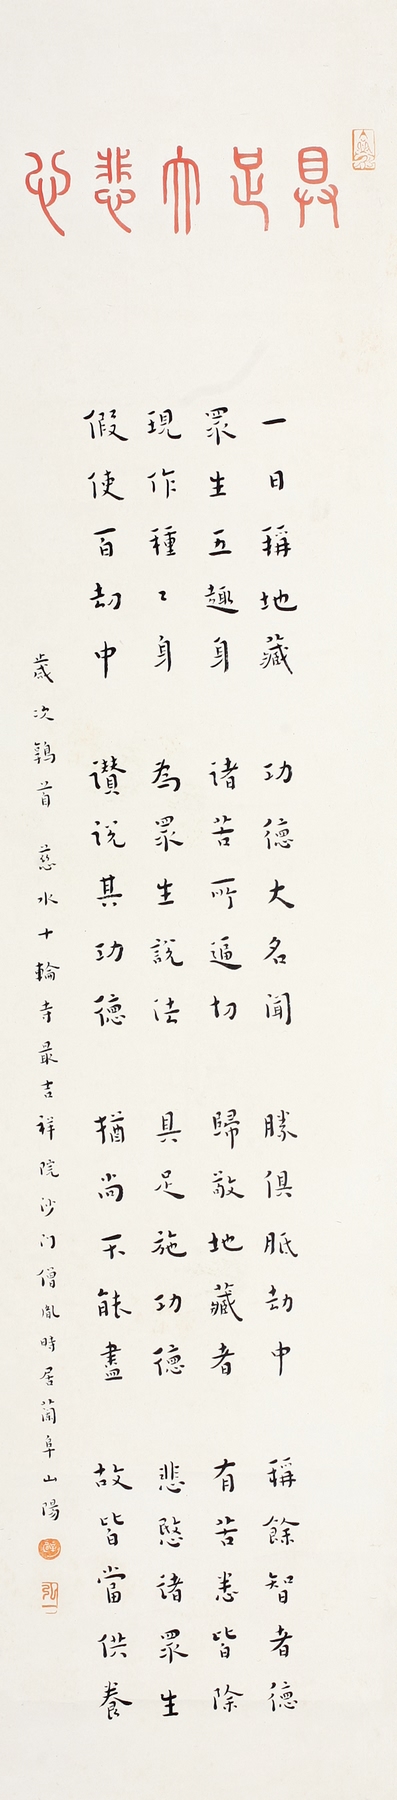 具足大悲心
一日稱地藏 功德大名聞 勝俱胝劫中 稱餘智者德
眾生五趣身 諸苦所逼切 歸敬地藏者 有苦悉皆除
現作種々身 為眾生說法 具足施功德 悲愍諸眾生
假使百劫中 讚說其功德 猶尚不能盡 故皆當供養
歲次鶉首 慈水十輪寺最吉祥院沙门僧胤時居蘭阜山陽
弘一